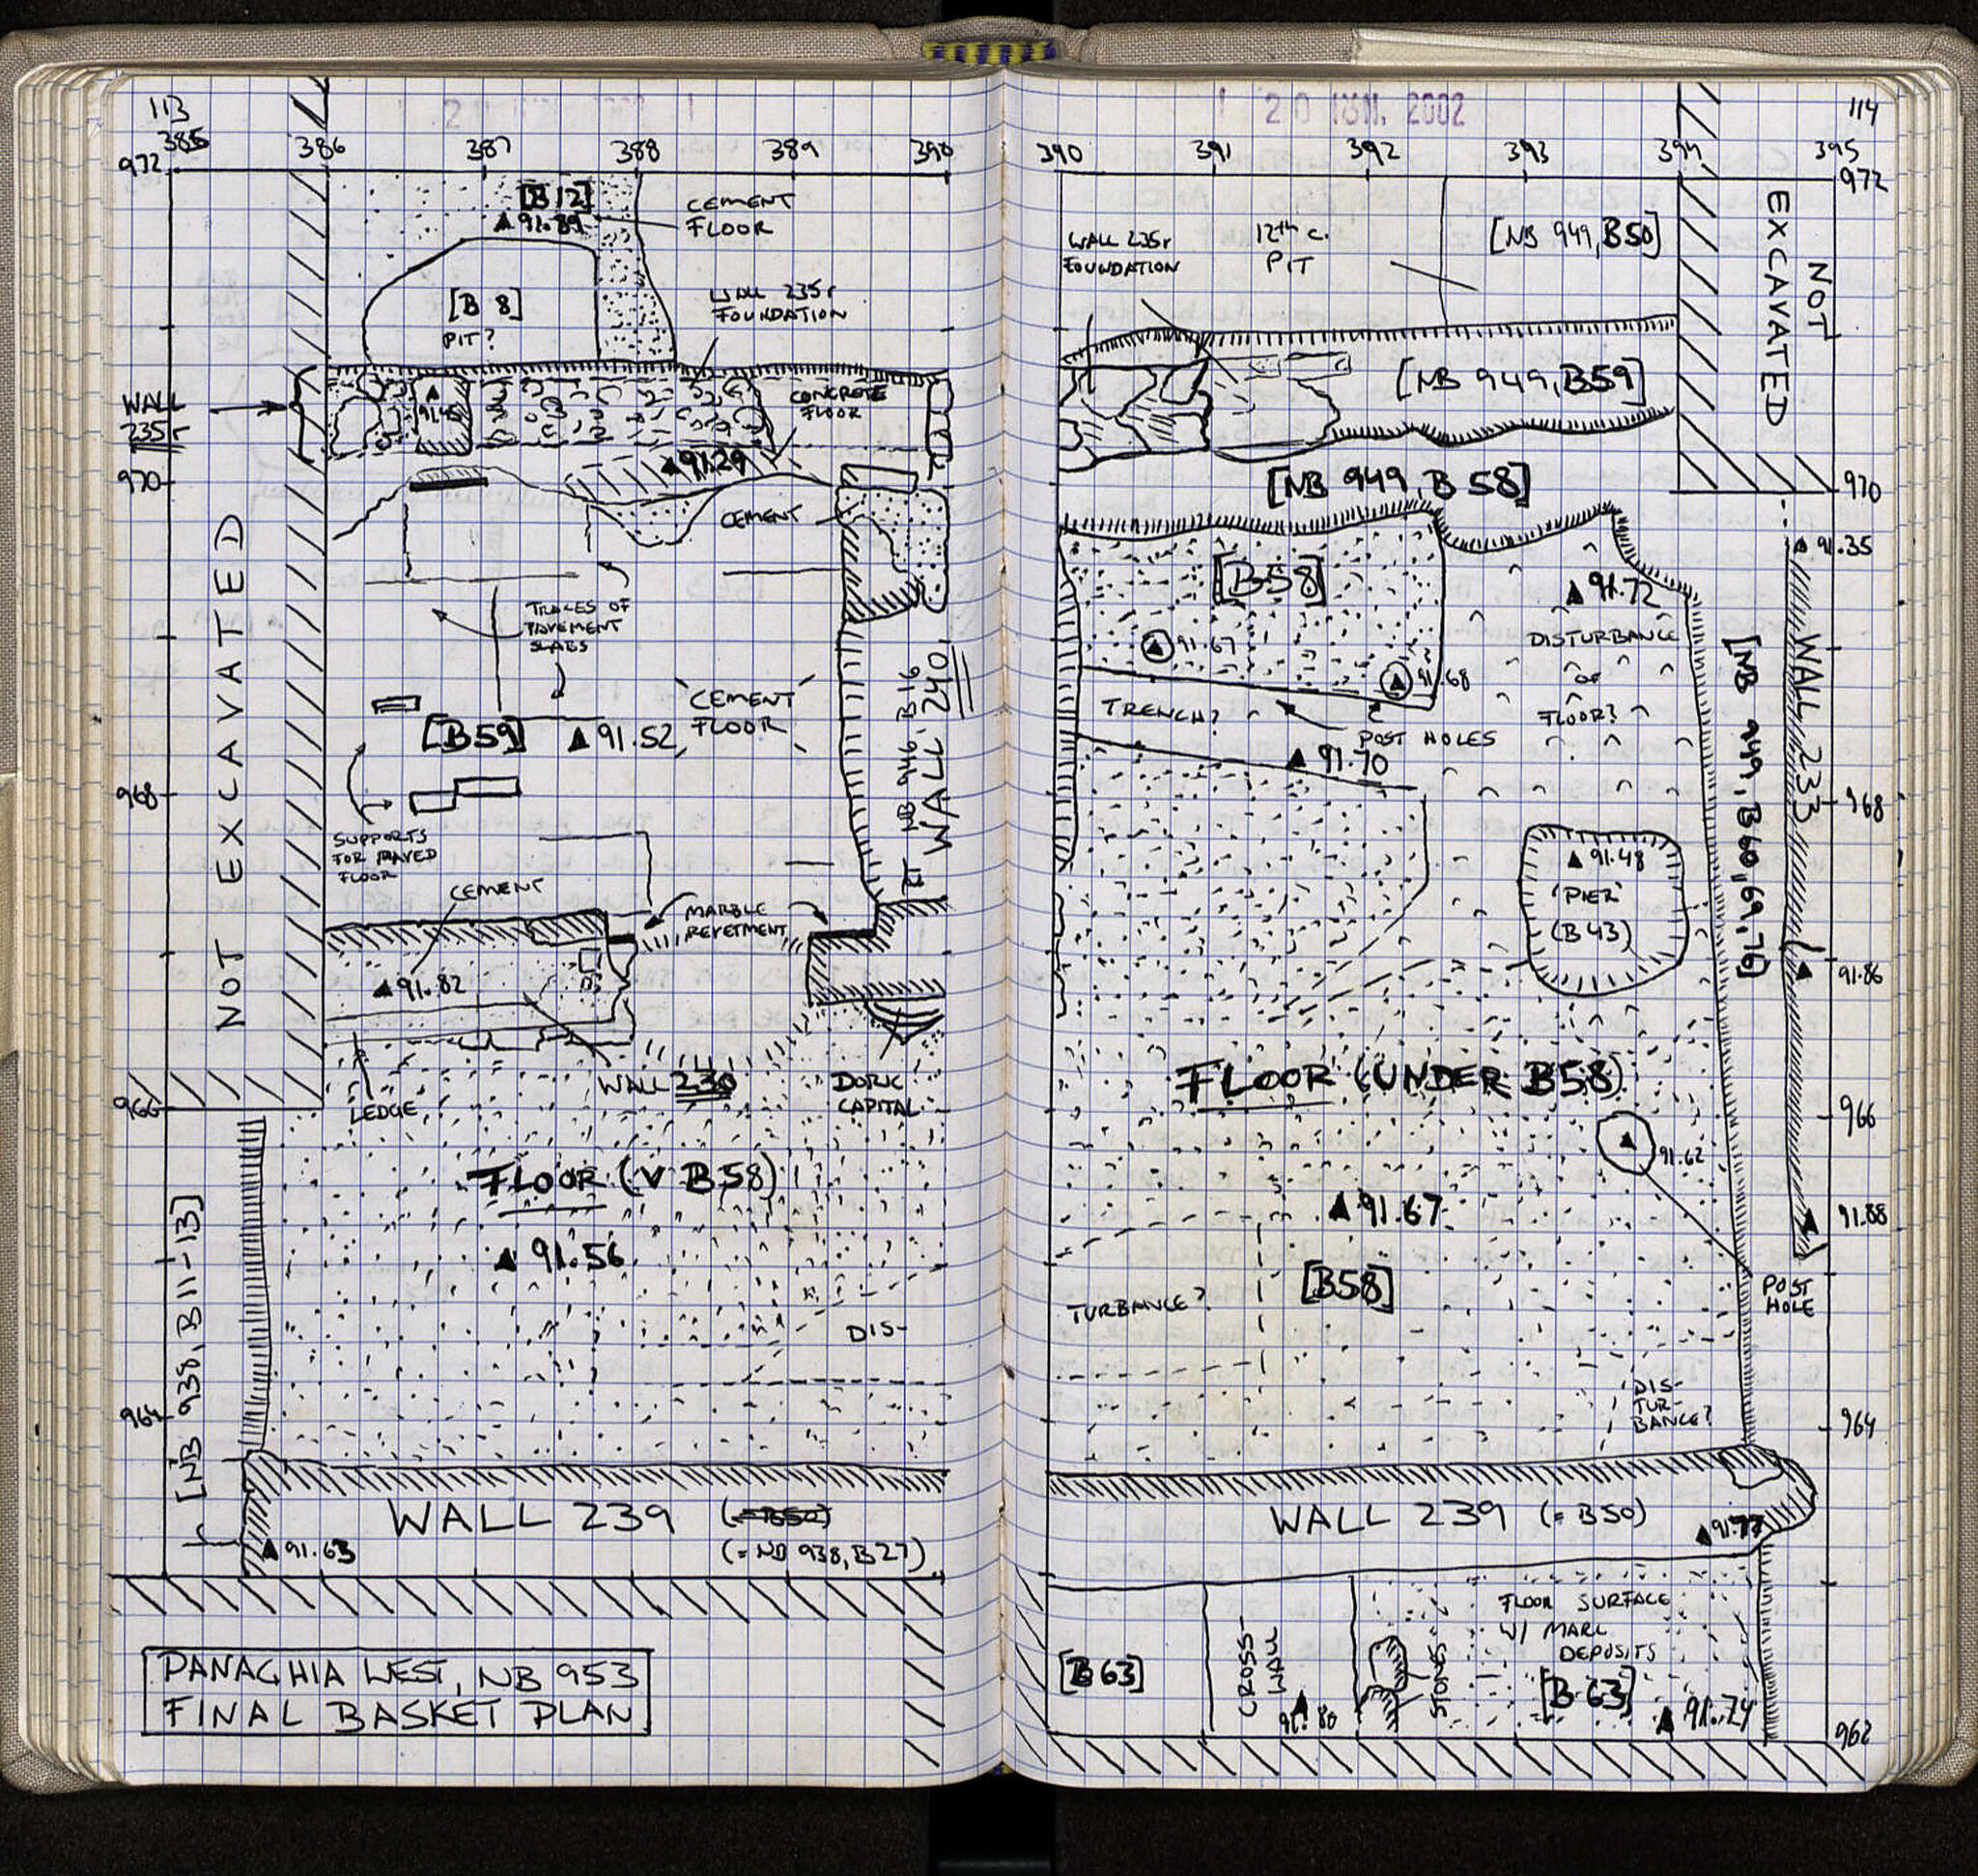 113
385 386 387 388 389 390
972
[B12]
▲ 91.89
CEMENT
FLOOR
[B 8]
PIT?
WALL 235r
FOUNDATION
WALL
235r
CONCRETE
FLOOR
▲91.29
970
CEMENT
NOT EXCAVATED
TRACES OF
PAVEMENT
SLABS
[B59] ▲ 91.52
'CEMENT'
FLOOR
NB 946, B16
WALL 240
968
SUPPORTS
FOR PAVED
FLOOR
CEMENT
MARBLE
REVETMENT
▲91.82
WALL 230
DORIC
CAPITAL
LEDGE
966
FLOOR (V B58)
▲ 91.56
[NB 938, B11-13]
DIS-
964
WALL 239 (= B50)
(= NB 938, B27)
▲91.63
PANAGHIA WEST, NB 953
FINAL BASKET PLAN
20 IOYN. 2002
114
390 391 392 393 394 395
972
WALL 235r
FOUNDATION
12th c.
PIT
[NB 949, B50]
NOT
EXCAVATED
[NB 949, B59]
[NB 949, B 58]
970
▲ 91.35
[B58]
▲ 91.72
▲ 91.67
DISTURBANCE
OF
FLOOR?
▲ 91.68
TRENCH?
POST HOLES
▲ 91.70
WALL 233
[NB 949, B60, 69, 76]
968
▲ 91.48
'PIER'
(B 43)
▲ 91.86
FLOOR (UNDER B58)
966
▲ 91.62
▲ 91.67
▲ 91.88
[B58]
TURBANCE?
POST
HOLE
DIS-
TUR-
BANCE?
964
WALL 239 (= B50)
▲91.77
[B63]
CROSS-
WALL
▲ 91.80
STONES
FLOOR SURFACE
W/ MARL
DEPOSITS
[B 63]
▲ 91.74
962